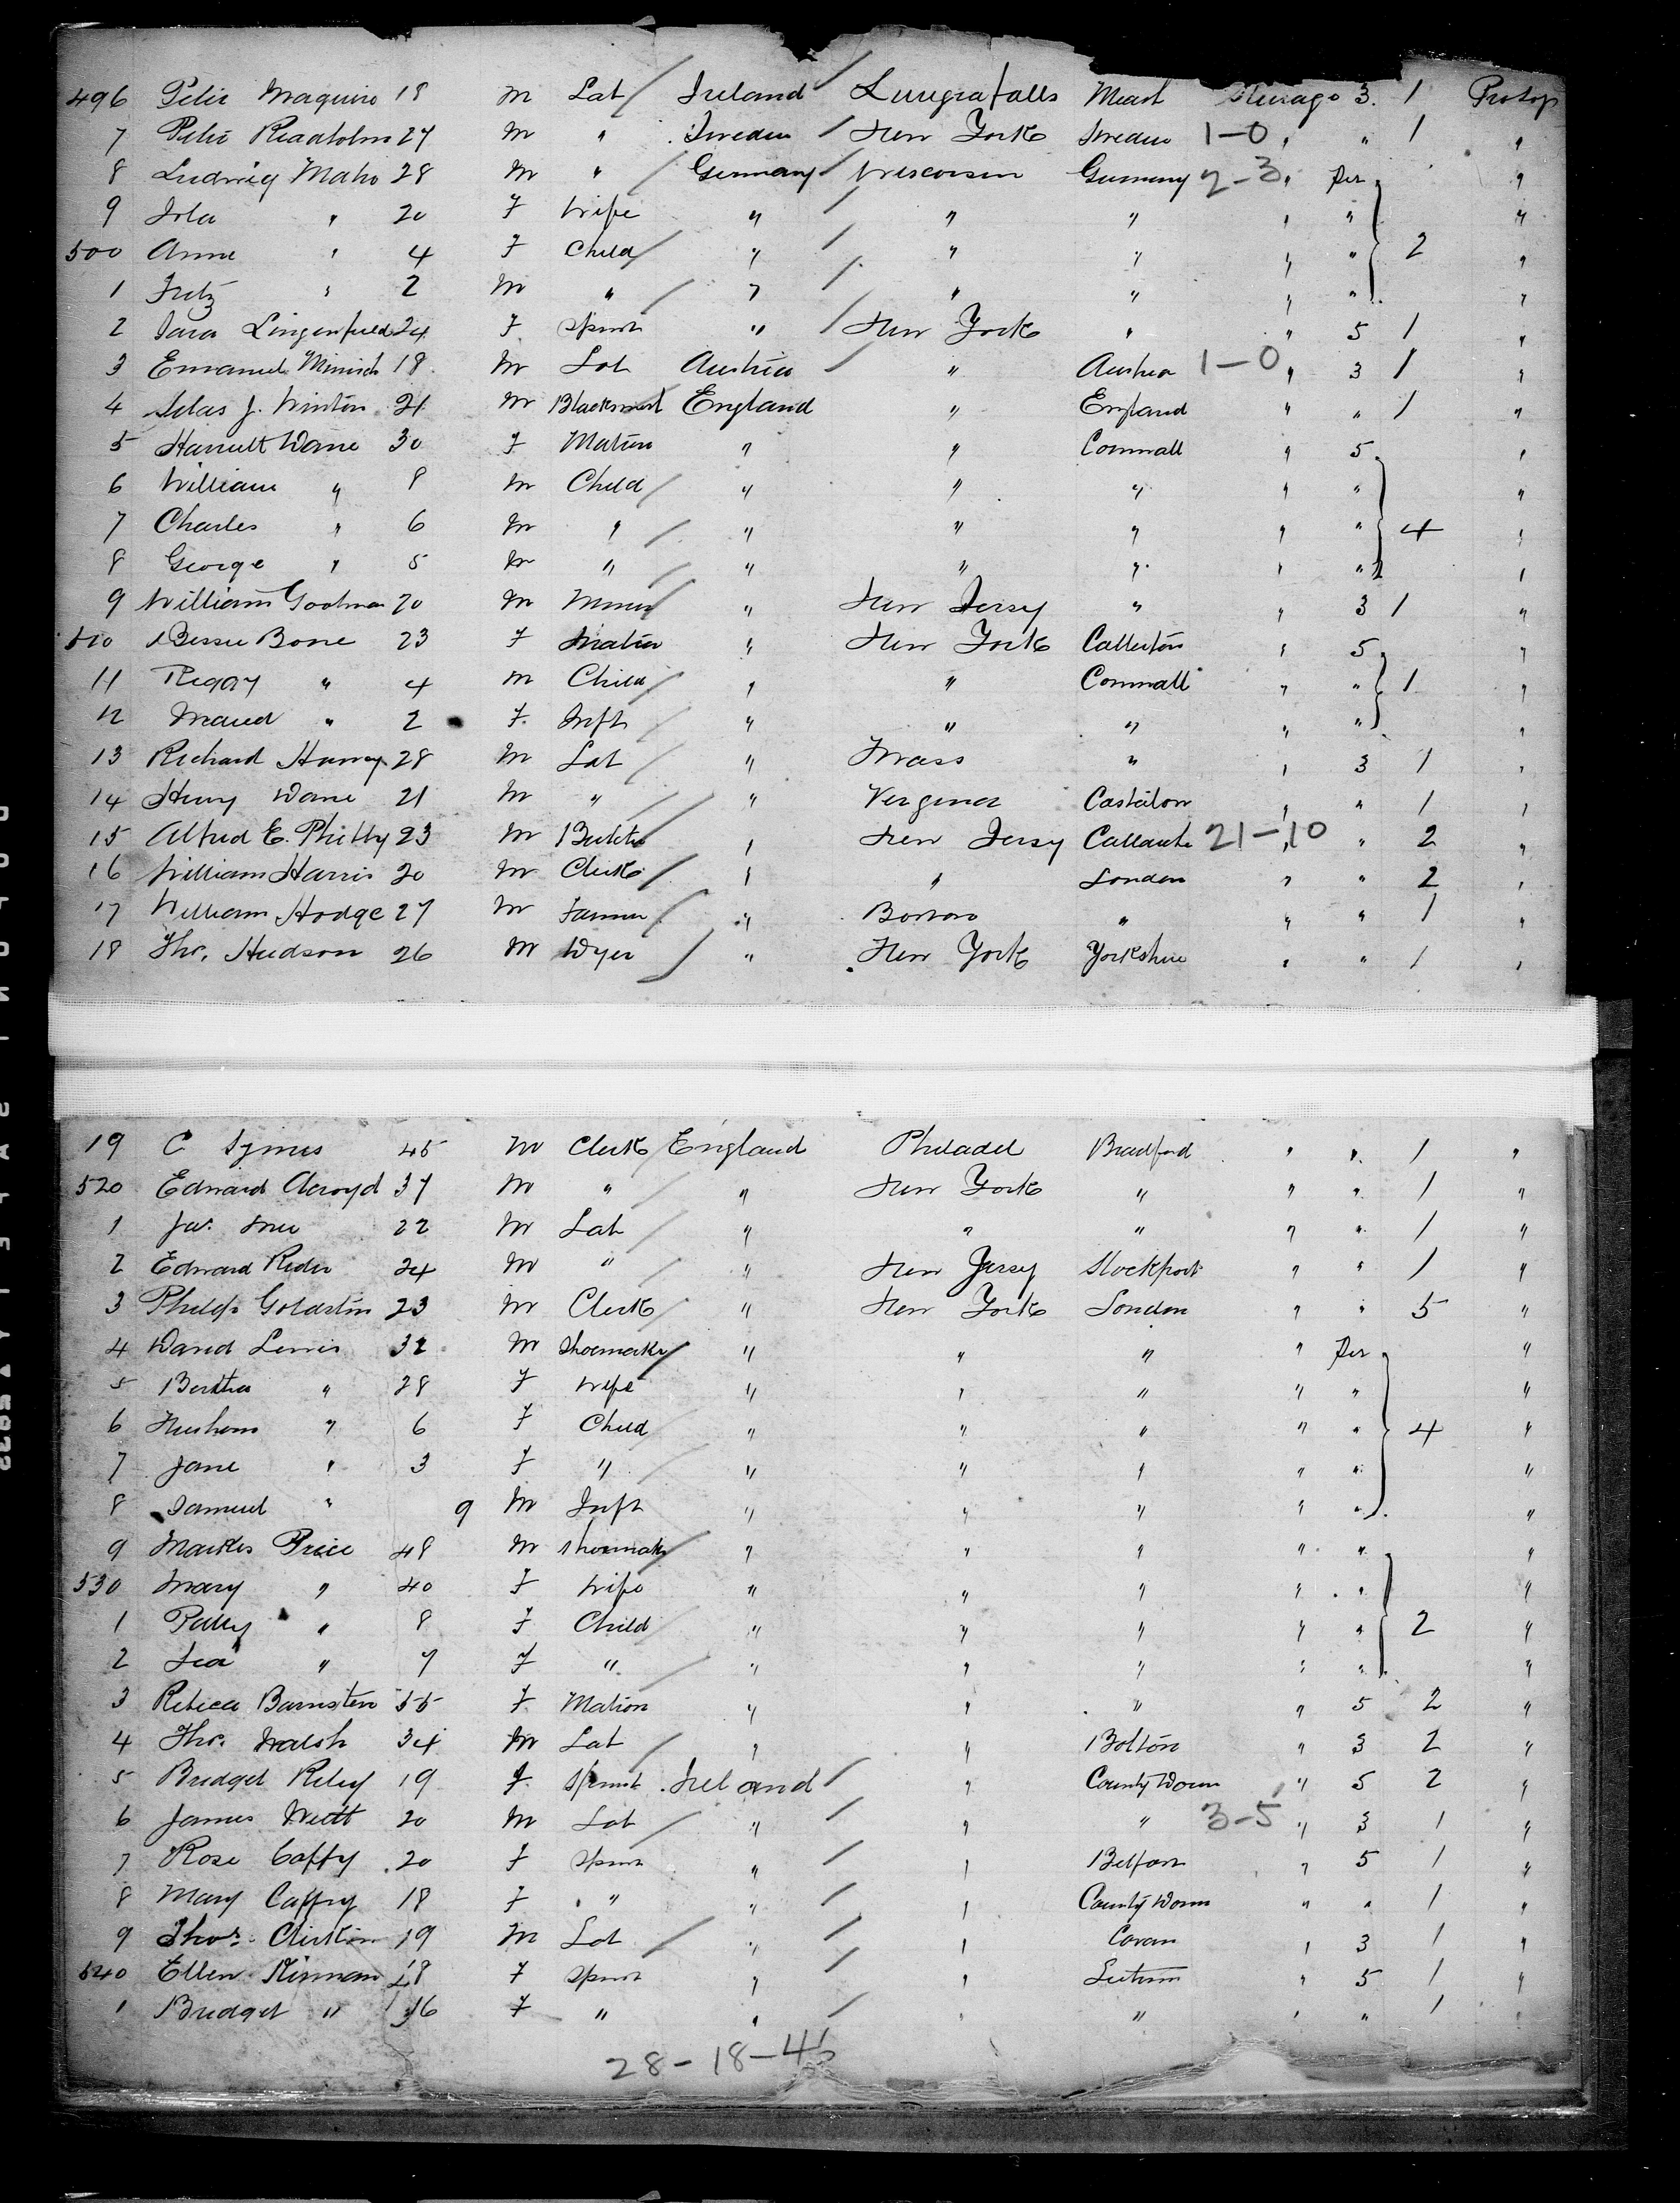 496 Peter Maquire 18 M Lab Ireland falls Meath Steerage 3. 1 Protsp
7 Peter 27 M " Sweden New York Sweden 1-0 " " 1 "
8 Ludwig Mahs 28 M " Germany Wisconsin Germany 2-3 " "
9 Ida " 20 F Wife " " " " " "
500 Anna " 4 F Child " " " " " 2 "
1 Fritz " 2 M " " " " " " "
2 Sara 24 F Spinst " New York " " 5 1 "
3 Emanuel 18 M Lab Austria " Austria 1-0 " 3 1 "
4 Silas J. Winton 21 M Blacksmith England " England " " 1 "
5 30 F Matron " " Cornwall " 5 "
6 William " 8 M Child " " " " " "
7 Charles " 6 M " " " " " " 4 "
8 George " 5 M " " " " " " "
9 William Goodman 20 M Miner " New Jersy " " 3 1 "
510 Bessie Bone 23 F Matron " New York " 5 "
11 " 4 M Child " " Cornwall " " 1 "
12 Maud " 2 F Inft " " " " " "
13 Richard Harvey 28 M Lab " Mass " " 3 1 "
14 21 M " " Virginia " " 1 "
15 Alfred E. 23 M " New Jersy 21-10 " " 2 "
16 William Harris 20 M Clerk " " London " " 2 "
17 William Hodge 27 M Farmer " Boston " " " 1 "
18 Thos. Hudson 26 M Dyer " New York Yorkshire " " 1 "
19 C Symes 45 M Clerk England Philadel Bradford " " 1 "
520 Edward Acroyd 37 M " " New York " " " 1 "
1 Jas. 22 M Lab " " " " " 1 "
2 Edward Rider 24 M " " New Jersy Stockport " " 1 "
3 Philip Goldstin 23 M Clerk " New York London " " 5 "
4 David Lewis 32 M Shoemaker " " " " "
5 Bertha " 28 F Wife " " " " " "
6 " 6 F Child " " " " " 4 "
7 Jane " 3 F " " " " " " "
8 Samuel " 9 M Inft " " " " " "
9 Price 48 M Shoemak " " " " " "
530 Mary " 40 F Wife " " " " " "
1 " 8 F Child " " " " " 2 "
2 Lea " 7 F " " " " " " "
3 55 F Matron " " " " 5 2 "
4 Thos. Walsh 34 M Lab " " Bolton " 3 2 "
5 Bridget Riley 19 F Spinst Ireland " County Down " 5 2 "
6 James 20 M Lab " " " 3-5 " 3 1 "
7 Rose Caffy 20 F Spinst " " Belfast " 5 1 "
8 Mary Caffry 18 F " " " County Down " " 1 "
9 Thos. 19 M Lab " " Cavan " 3 1 "
540 Ellen 18 F Spinst " " Leitrim " 5 1 "
1 Bridget " 16 F " " " " " " 1 "
28-18-46